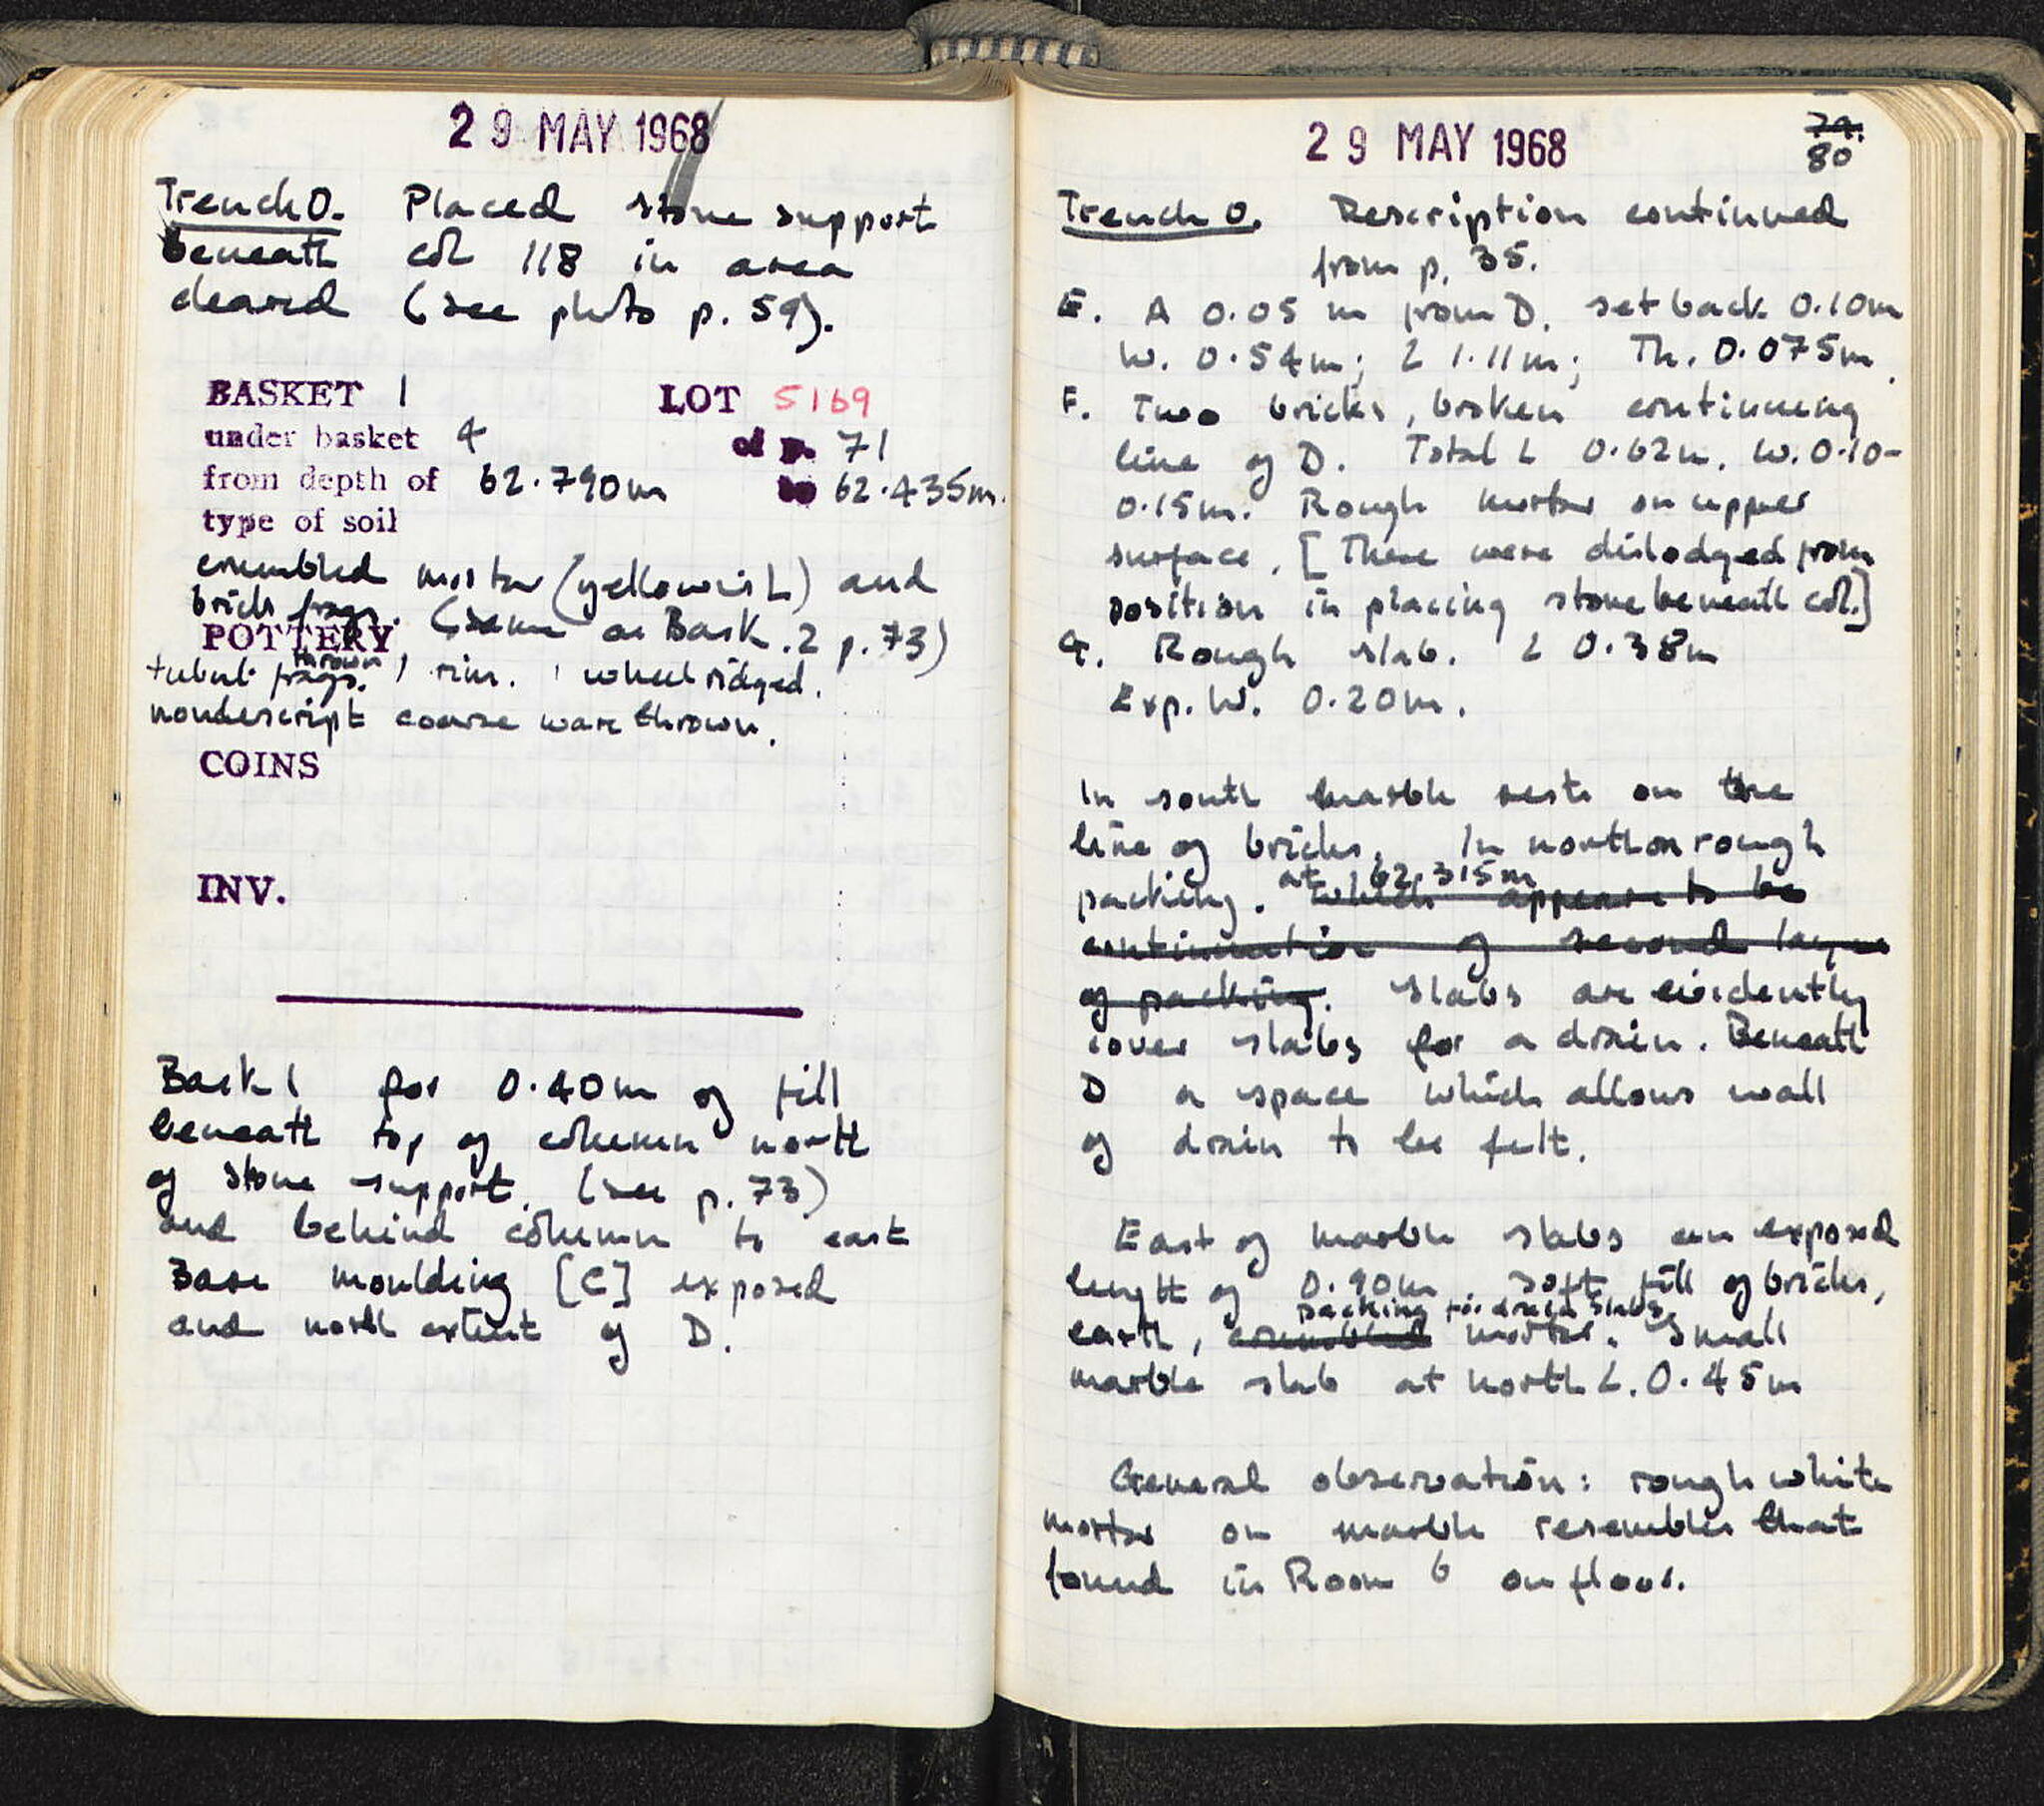 29 MAY 1968
Trench O. Placed stone support
beneath col 118 in area
cleared (see photo p. 59).
BASKET 1 LOT 5169
under basket 4 of p. 71
from depth of 62.790m to 62.435m.
type of soil
crumbled mortar (yellowish) and
brick frags. (same as Bask. 2 p. 73)
POTTERY
thrown
1 rim. 1 wheel ridged.
nondescript coarse ware thrown.
COINS
INV.
Bask 1 for 0.40m of fill
beneath top of column north
of stone support. (see p. 73)
and behind column to east
Base moulding [C] exposed
and north extent of D.
29 MAY 1968
79.
80
Trench O. Description continued
from p. 35.
E. A 0.05 m from D. set back 0.10m
W. 0.54m; L 1.11m; Th. 0.075m.
F. Two bricks, broken continuing
line of D. Total L 0.62m. W. 0.10-
0.15m. Rough mortar on upper
surface. [These were dislodged from
position in placing stone beneath col.]
G. Rough slab. L 0.38m
Exp. W. 0.20m.
In south marble rests on the
line of bricks. In north on rough
at 62.315m
packing. which appears to be
continuation of second layer
of packing. Slabs are evidently
cover slabs for a drain. Beneath
D a space which allows wall
of drain to be felt.
East of marble slabs an exposed
length of 0.90m. Soft fill of bricks,
packing for drain slabs
earth, crumbled mortar. Small
marble slab at north L. 0.45m
General observation: rough white
mortar on marble resembles that
found in Room 6 on floor.